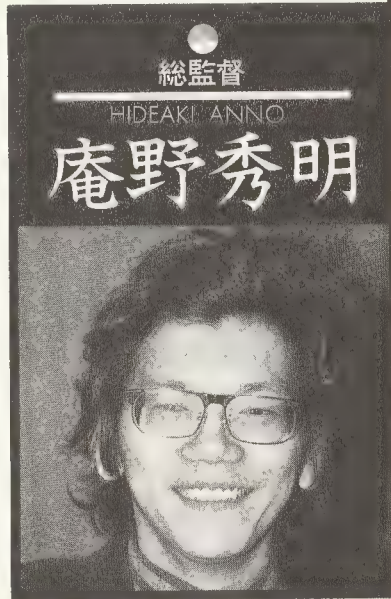 総監督
HIDEAKI ANNO
庵野秀明